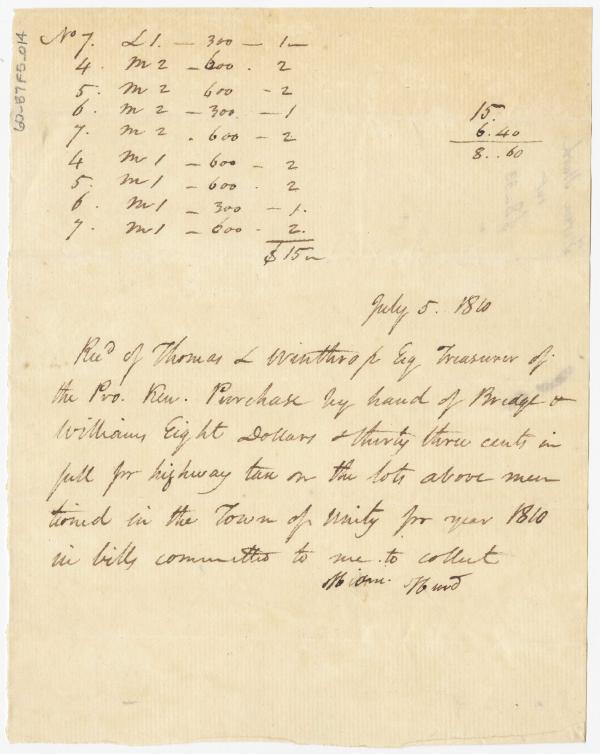 No 7. L 1. — 300 — 1 —
4. M 2 — 600 . 2
5. M 2 600 — 2
6. M 2 — 300 — 1
7. M 2 . 600 — 2
4 M 1 — 600 — 2
5. M 1 — 600 . 2
6. M 1 — 300 — 1.
7. M 1 — 600 — 2.
$ 15 —
15.
6.40
8..60
July 5. 1810
Recd of Thomas L Winthrop Esq Treasurer of
the Pro. Ken. Purchase by hand of Bridge &
Williams Eight Dollars & thirty three cents in
full for highway tax on the lots above men
tioned in the Town of Unity for year 1810
in bills committed to me to collect
Hiram Hurd
60-B7F5_014